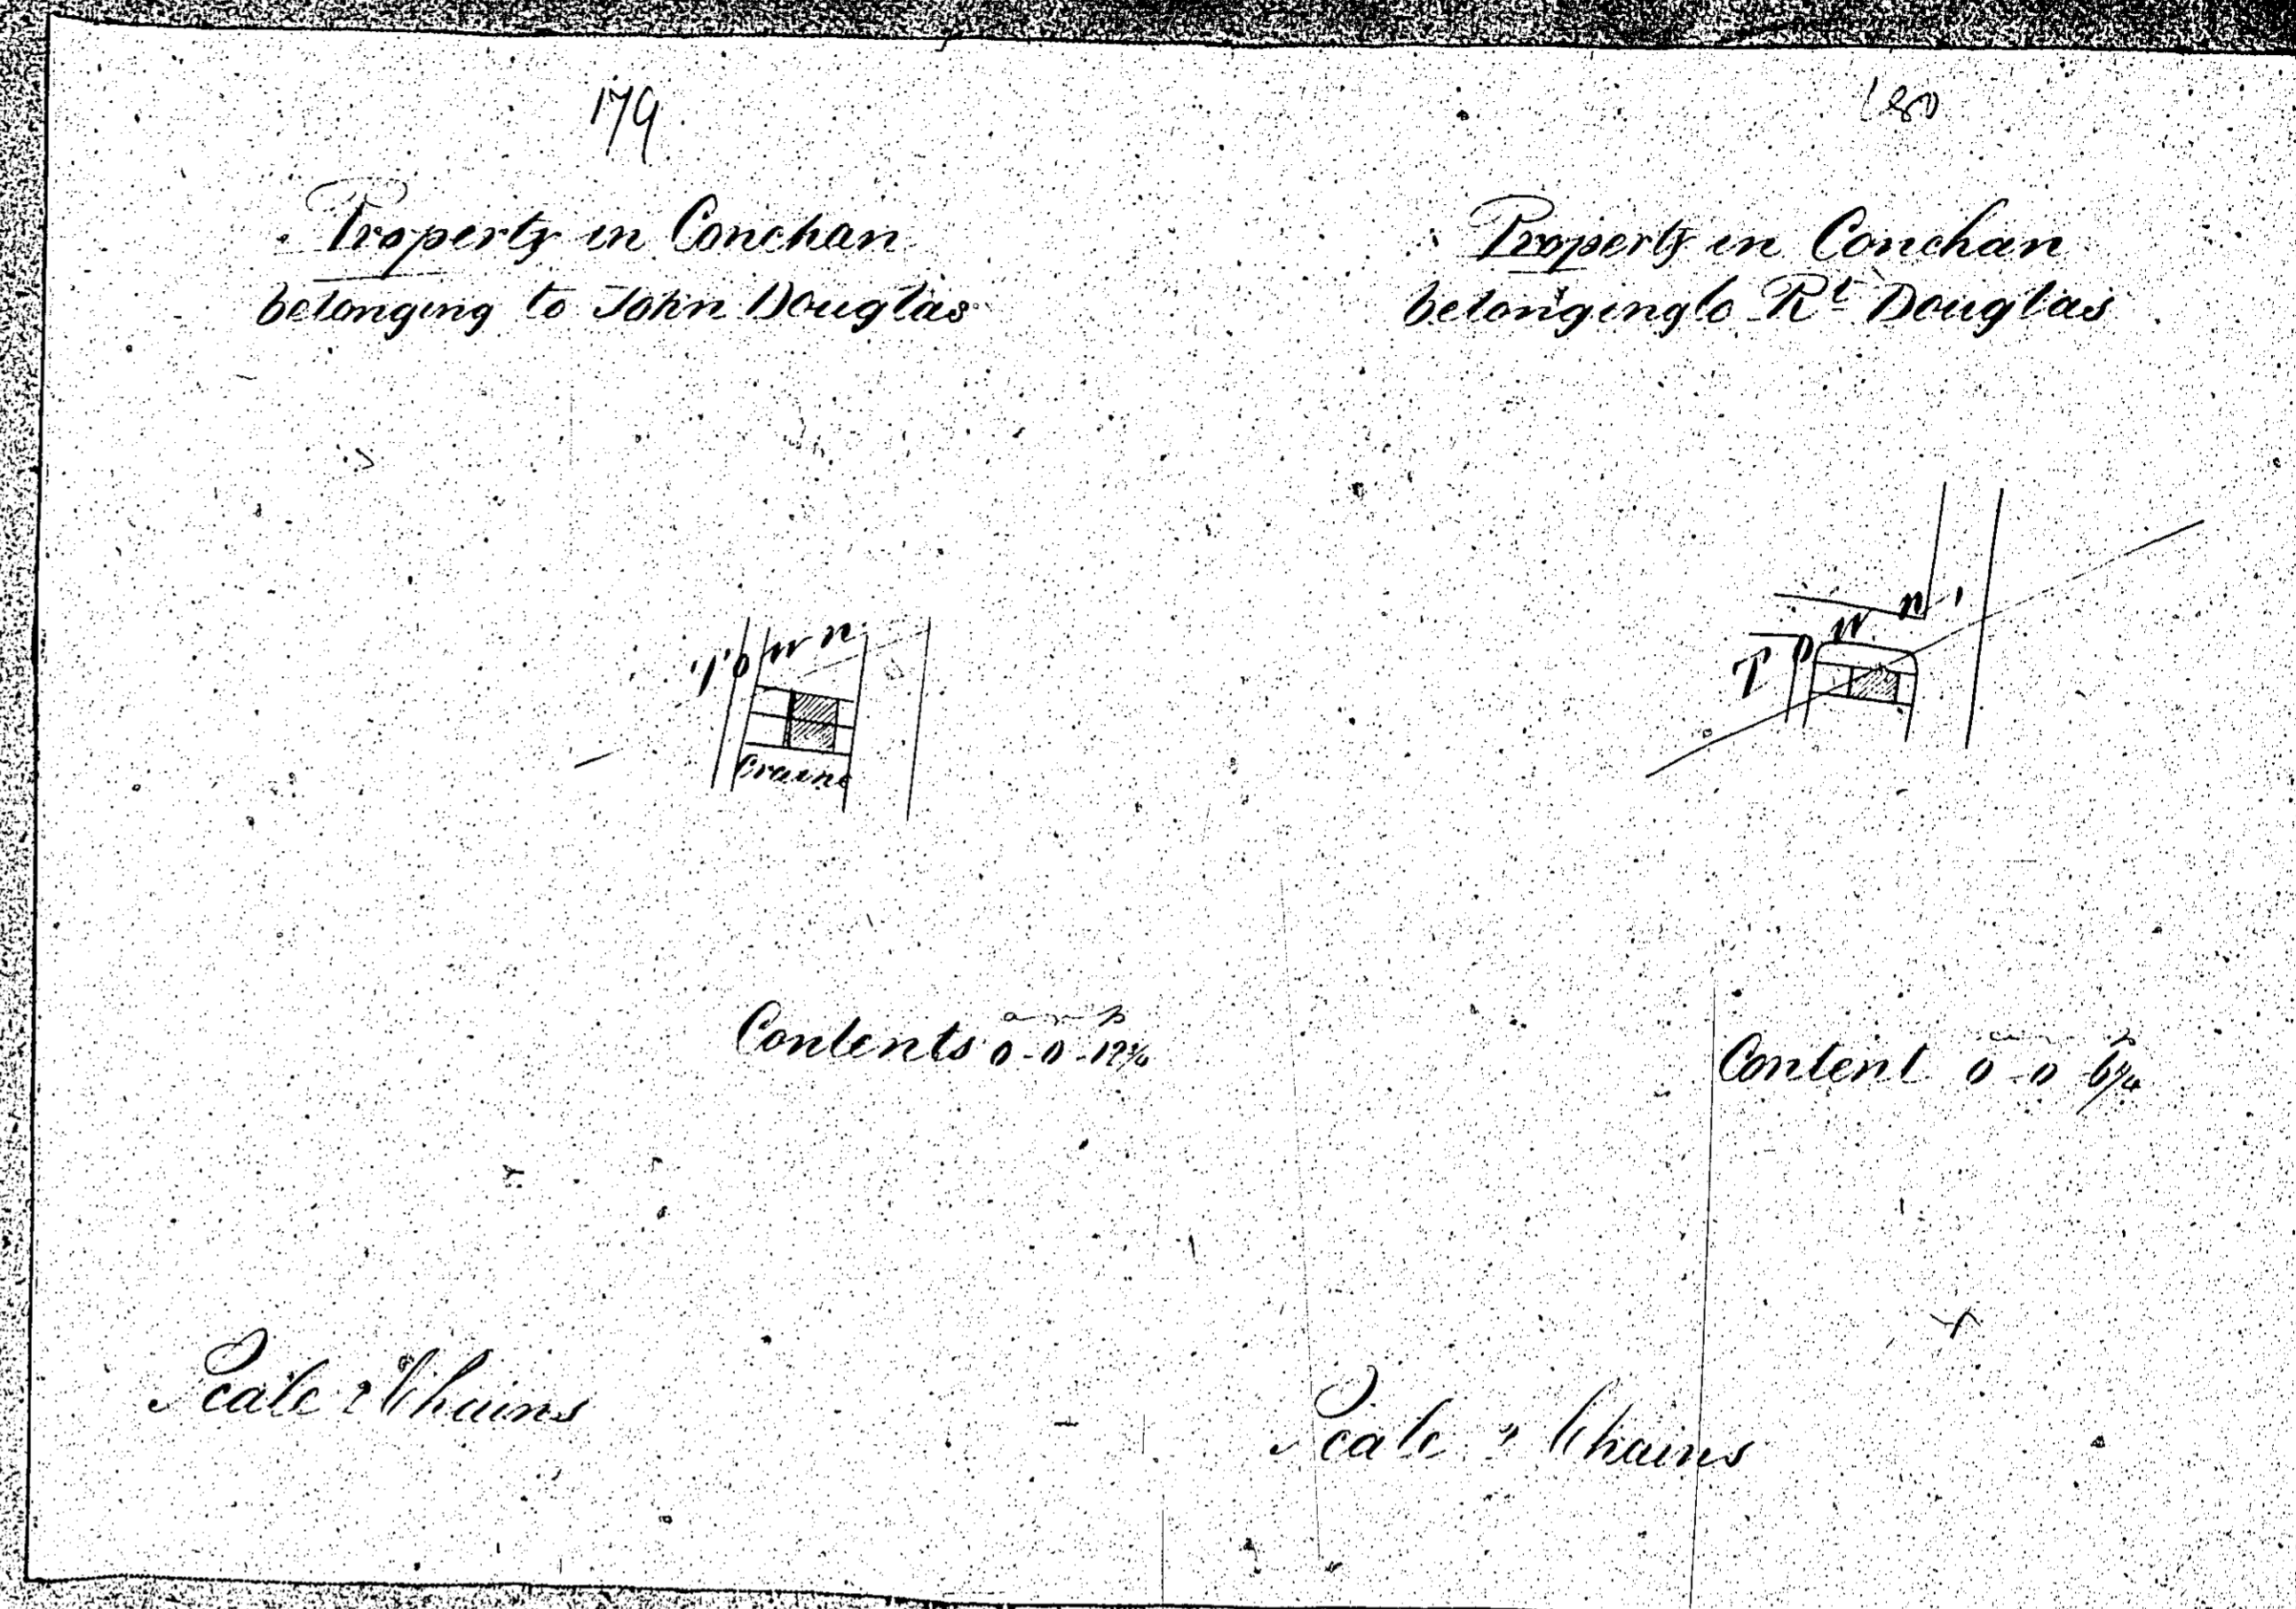 179
Property in Conchan
belonging to John Douglas
Town
Craine
Contents a r p
0-0-12¾
Scale 2 Chains
180
Property in Conchan
belonging to Rt Douglas
Town
Content
0 0 6¼
Scale 2 Chains